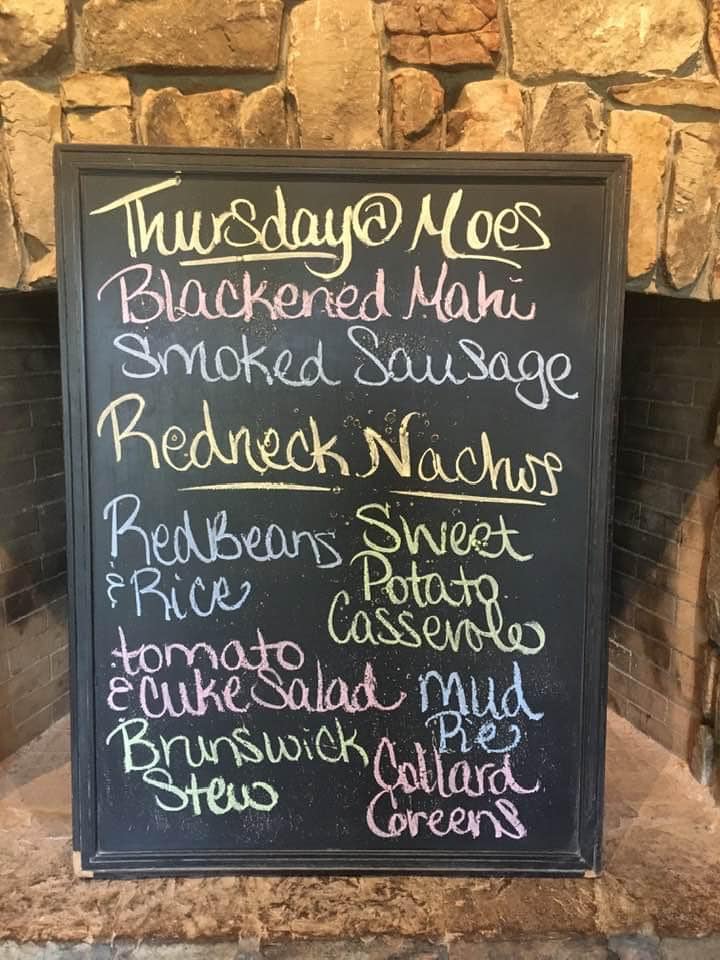 Thursday @ Moes
Blackened Mahi
Smoked Sausage
Redneck Nachos
Red Beans
& Rice
Sweet
Potato
Casserole
tomato
& Cuke Salad
Mud
Pie
Brunswick
Stew
Collard
Greens